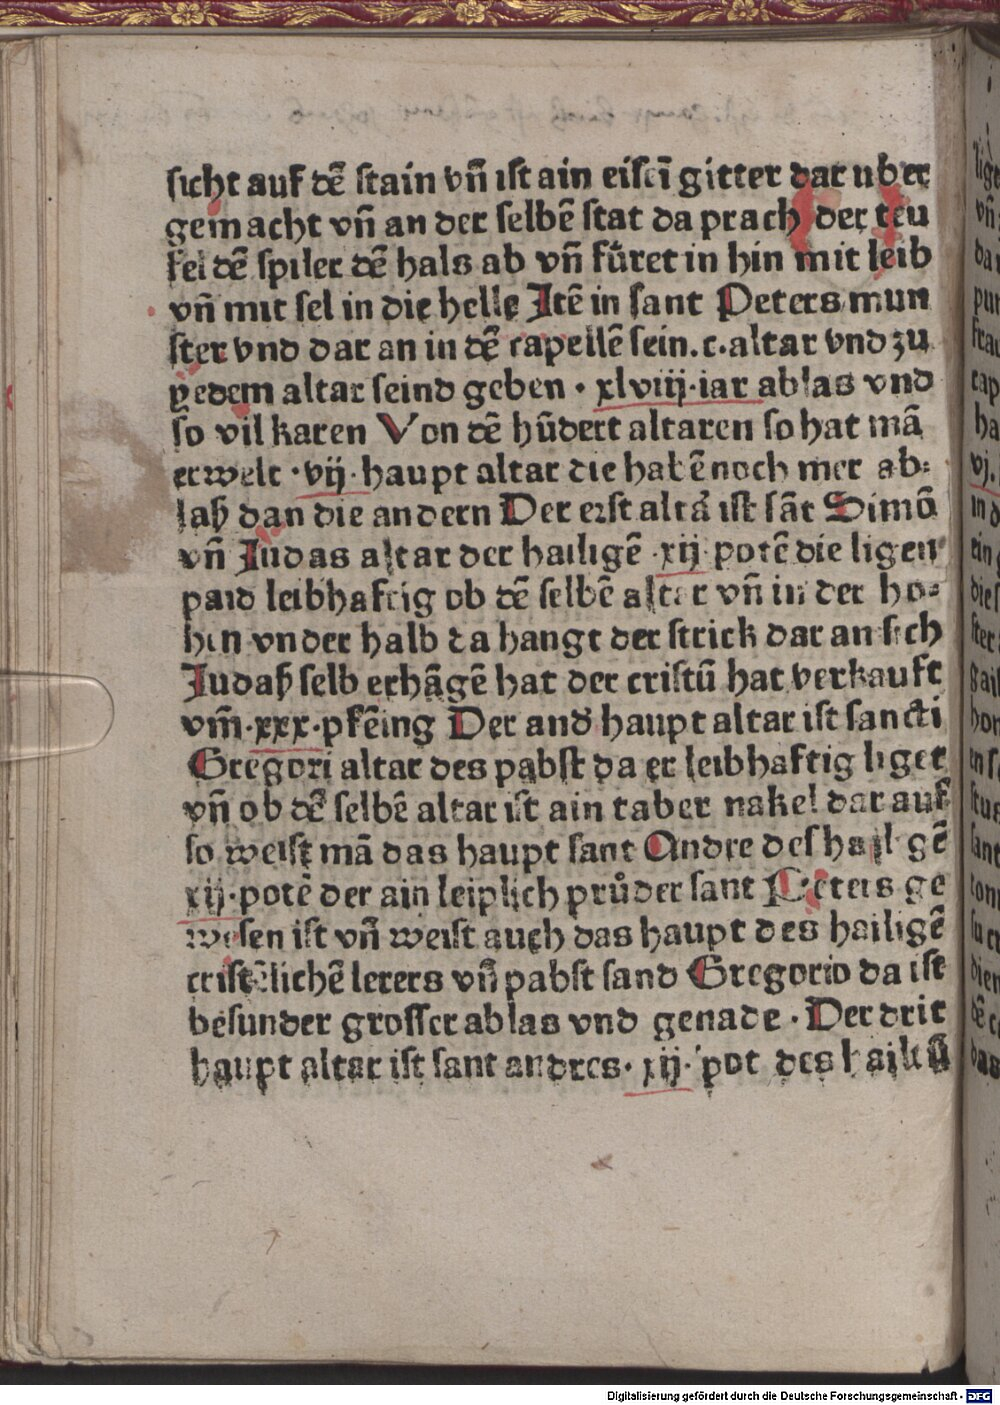 sicht auf dē stain vn̄ ist ain eisēī gitter dar uber
gemacht vn̄ an der selbē stat da prach der teu
fel dē spiler dē hals ab vn̄ fůret in hin mit leib
vn̄ mit sel in die helle Itē in sant Peters mun
ster vnd dar an in dē capellē sein .c. altar vnd zu
yedem altar seind geben · xlviij · iar ablas vnd
so vil karen Von dē hūdert altaren so hat mā
erwelt · vij · haupt altar die habē noch mer ab⸗
laß dan die andern Der erst altar ist sāt Simō
vn̄ Judas altar der hailigē · xij · potē die ligen
paid leibhaftig ob dē selbē altar vn̄ in der ho⸗
hen vnder halb da hangt der strick dar an sich
Judaß selb erhāgē hat der cristū hat verkauft
vm̄ · xxx · pfēing Der and haupt altar ist sancti
Gregori altar des pabst da er leibhaftig liget
vn̄ ob dē selbē altar ist ain taber nakel dar auf
so weist mā das haupt sant Andre des hailigē
xij · potē der ain leiplich průder sant Peters ge
wesen ist vn̄ weist auch das haupt des hailigē
cristēlichē lerers vn̄ pabst sand Gregorio da ist
besunder grosser ablas vnd genade · Der drit
haupt altar ist sant andres · xij · pot des
Digitalisierung gefördert durch die Deutsche Forschungsgemeinschaft - DFG